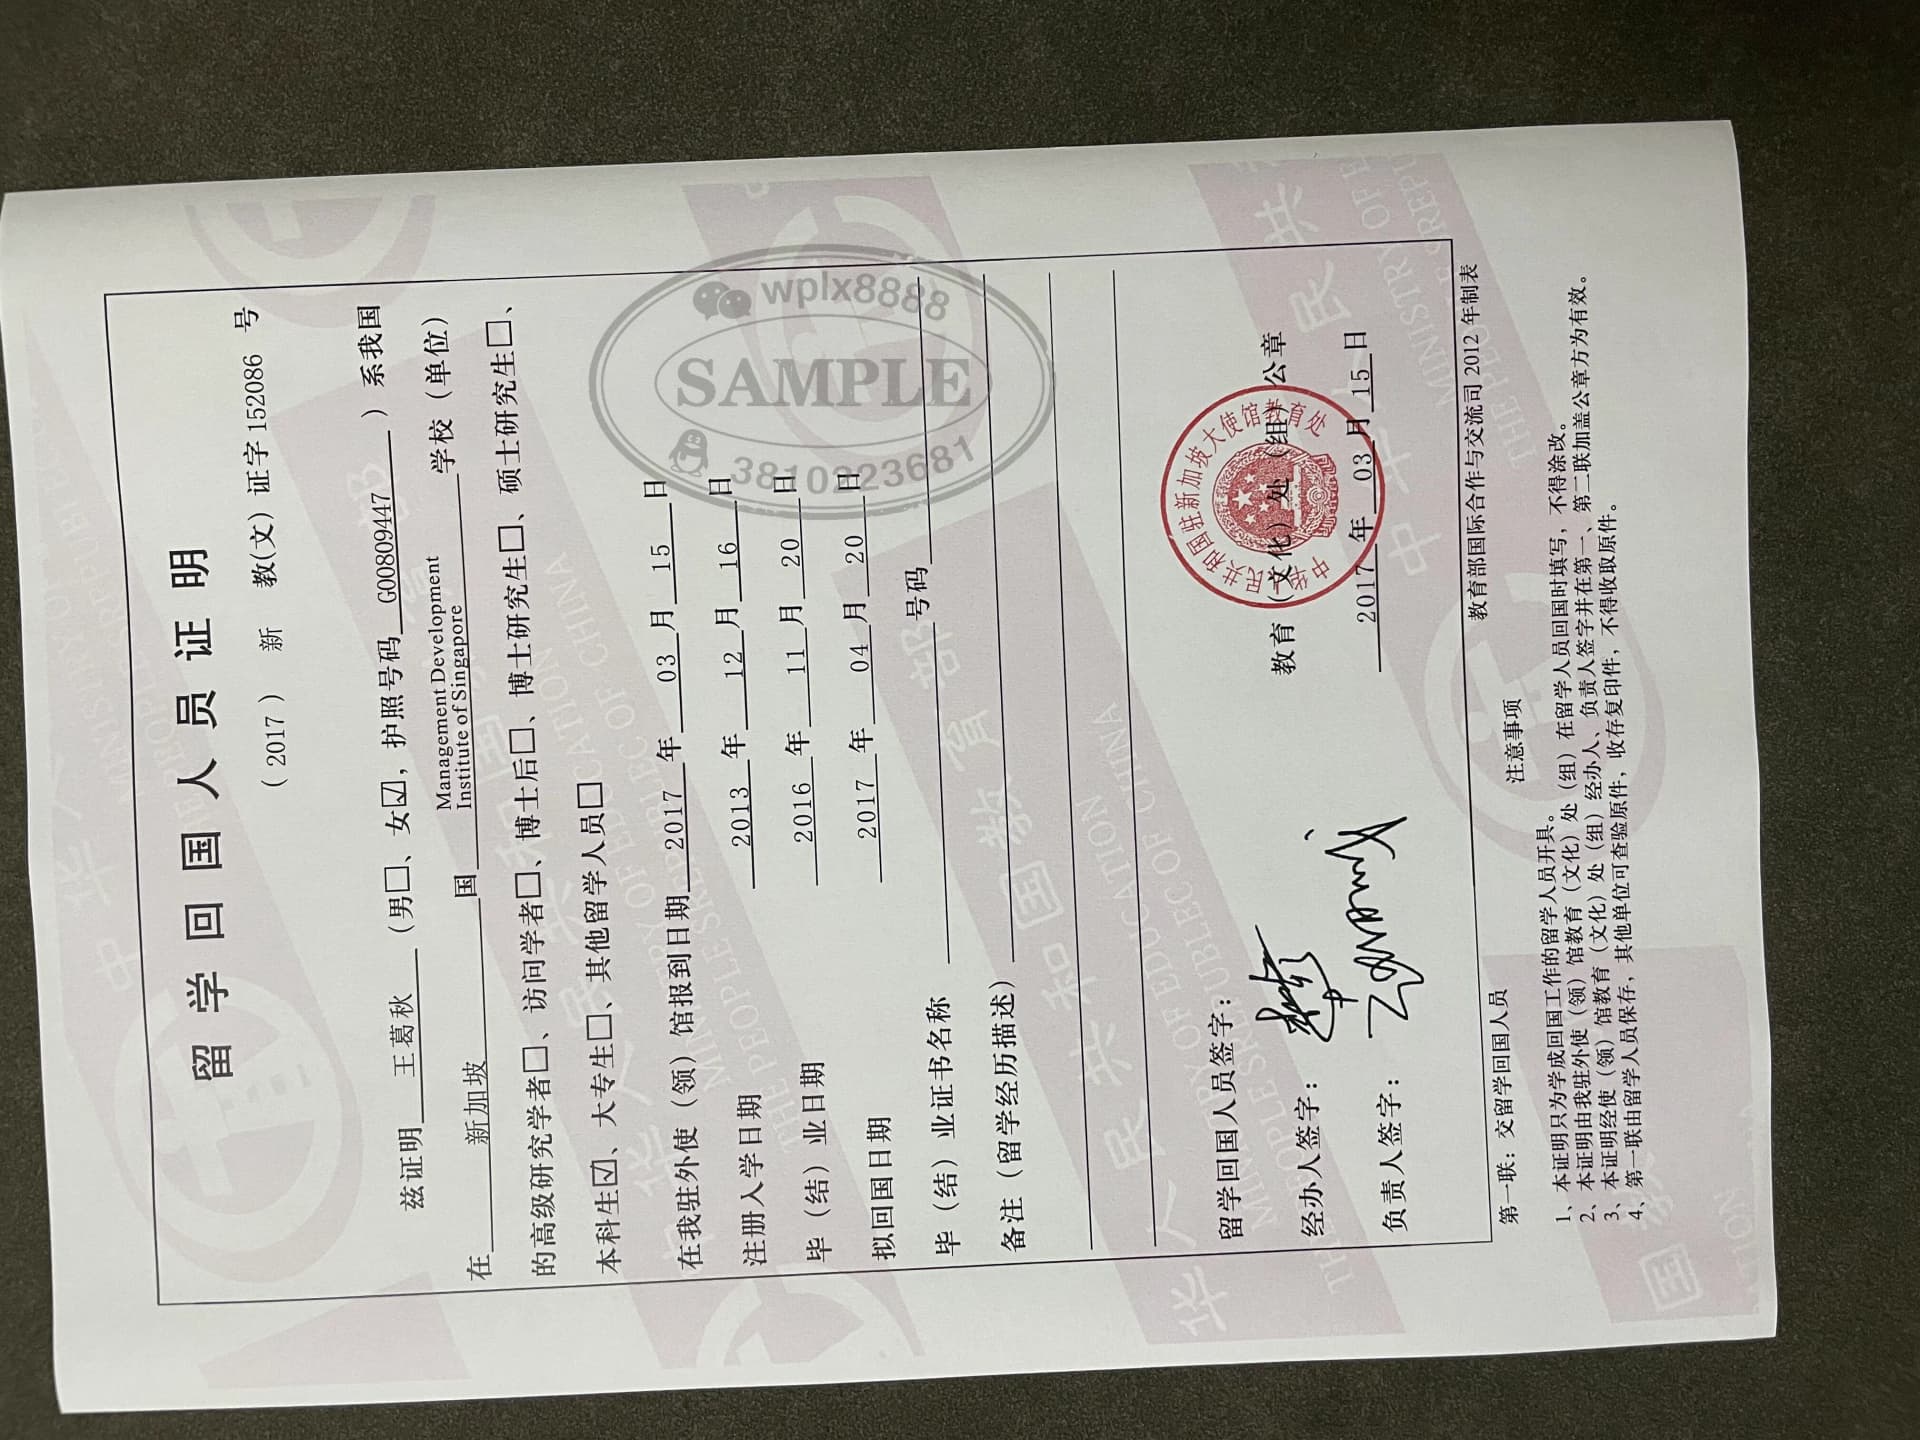 留学回国人员证明
（2017）新 教(文）证字152086 号
兹证明 王葛秋 （男□、女☑，护照号码 G00809447 ）系我国
在 新加坡 国 Management Development Institute of Singapore 学校（单位）
的高级研究学者□、访问学者□、博士后□、博士研究生□、硕士研究生□、
本科生☑、大专生□、其他留学人员□
在我驻外使（领）馆报到日期 2017 年 03 月 15 日
注册入学日期 2013 年 12 月 16 日
毕（结）业日期 2016 年 11 月 20 日
拟回国日期 2017 年 04 月 20 日
毕（结）业证书名称 号码
备注（留学经历描述）
留学回国人员签字：
经办人签字：
负责人签字：
教育（文化）处（组）公章
2017 年 03 月 15 日
中华人民共和国驻新加坡大使馆教育处
教育部国际合作与交流司 2012 年制表
第一联：交留学回国人员
注意事项
1、本证明只为学成回国工作的留学人员开具。
2、本证明由我驻外使（领）馆教育（文化）处（组）在留学人员回国时填写，不得涂改。
3、本证明经使（领）馆教育（文化）处（组）经办人、负责人签字并在第一、第二联加盖公章方为有效。
4、第一联由留学人员保存，其他单位可查验原件，收存复印件，不得收取原件。
wplx8888
SAMPLE
3810223681
中华人民共和国教育部
MINISTRY OF EDUCATION
THE PEOPLE'S REPUBLEC OF CHINA